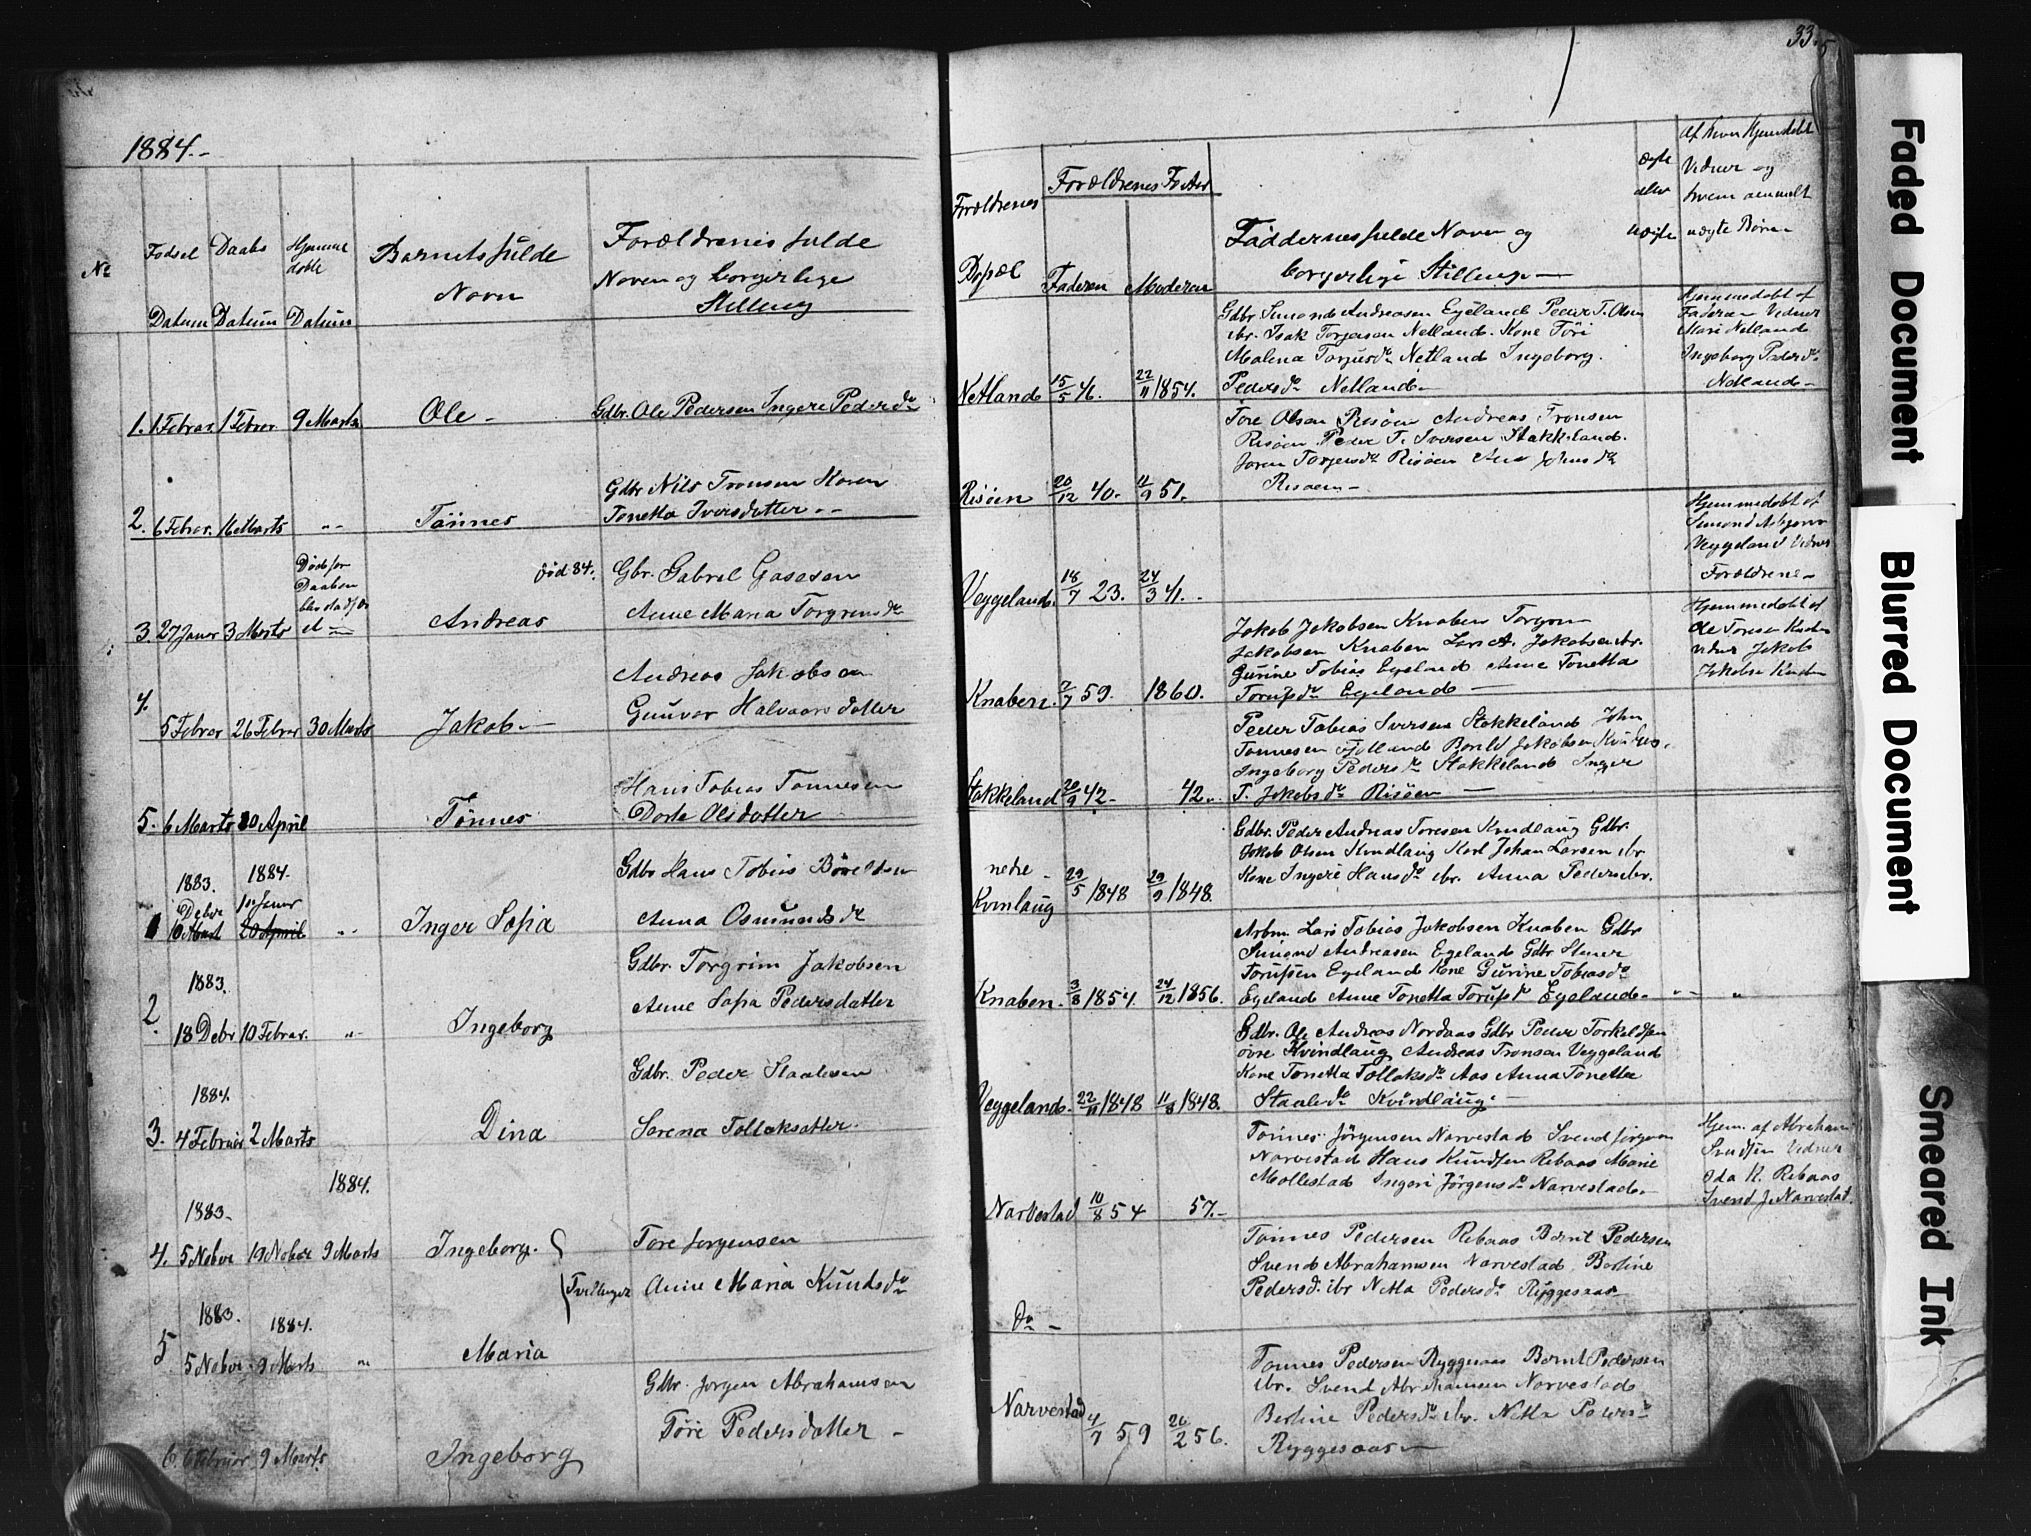 33
5
1884.-
No
Fødsel
Datum
Daabs
Datum
Hjemme
døbte
Datum
Barnets fulde
Navn
Forældrenes fulde
Navn og borgerlige
Stilling
Forældrenes
Bopæl
Forældrenes F. Aar
Faderen Moderen
Faddernes fulde Navn og
borgerlige Stilling
ægte
eller
uægte
Af hvem Hjemdøbt
Vidner og
hvem anmeldt
uægte Børn
1. 1 Febrar 1 Febror 9 Marts Ole - Gdbr. Ole Pedersen Ingere Pedersdr
Netland 15/5 46. 22/11 1854.
Gdbr Simond Andreasen Egeland Peder T. Olsen
ibr. Isak Torjesen Netland. Kone Tøri
Malena Torjusdr Netland Ingeborg
Pedersdr Netland
Hjemmedøbt af
Faderen Vidner
Mari Netland
Ingeborg Pedersdr
Netland
Gdbr Nils Tronsen Koren
2. 6 Febrar. 16 Marts " Tønnes Tonetta Iversdatter
Risøen 20/12 40. 11/9 51.
Tore Olsen Risøen Andreas Tronsen
Risøen Peder T. Iversen Stakkeland.
Joren Torjersdr Risøen Ane Johnsdr
Risøen
Død før
Daaben
død 84.
Gbr. Gabrel Gasesen
3. 27 Janr 3 Marts Andreas Anne Maria Torgrimsdr
Veggeland. 18/7 23. 24/3 41.
Hjemmedøbt af
Simond Asbjorn
Veggeland Vidner
Forældrene
Andreas Jakobsen
4. 5 Febror 26 Febrar 30 Marts Jakob Gunvor Halvaarsdatter
Knaben. 7/7 59. 1860.
Jakob Jakobsen Knaben Torgrim
Jakobsen Knaben Lars A. Jakobsen ibr.
Gurine Tobias Egeland Anne Tonetta
Torufsdr Egeland
Hjemmedøbt af
Ole Toresen
vidner Jakob
Jakobsen
Hans Tobias Tonnesen
5. 6 Marts 20 April Tønnes Dorte Olsdatter
Stakkeland 20/9 42 42.
Peder Tobias Iversen Stakkeland John
Tonnesen Fjotland Bonild Jakobsen
Ingeborg Pedersdr Stakkeland Inger
T. Jakobsdr Risøen
1883. 1884.
Gdbr Hans Tobias
1 Debr 1 Janr Inger Sofia Anna Osmundsdr
nedre
Kvinlaug 29/5 1848 29/9 1848.
Gdbr. Peder Andreas Toresen Kvndlaug Gdbr.
Jakob Olsen Kvndlaug Karl Johan Larsen ibr
Kone Ingeri Hansdr ibr. Anna Peders ibr.
1883.
Gdbr. Torgrim Jakobsen
2. 18 Debr 10 Febrar. " Ingeborg Anne Sofia Pedersdatter
Knaben. 3/8 1854. 24/12 1856.
Arbm. Lars Tobias Jakobsen Knaben Gdbr
Simond Andreasen Egeland Gdbr
Torufsen Egeland Kone Gurine Tobiasdr
Egeland Anne Tonetta Torufsdr Egeland.
1884.
Gdbr. Peder Staalesen
3. 4 Februar 2 Marts Dina Sorena Tollaksatter
Veggeland. 22/11 1848 11/8 1848.
Gdbr. Ole Andreas Nordaas Gdbr Peder Torkeldsen
øvre Kvindlaug Andreas Tronsen Veggeland
Kone Tonetta Tollaksdr Aas Anna Tonetta
Staalesdr Kvindlaug.
1883. 1884.
4. 5 Nobvr 19 Nobvr 9 Marts Ingeborg. Tore Jorgensen
Tvillinger Anne Maria Knudsdr
Narvestad 10/8 54 57.
Tønnes Jørgensen Narvestad Svend Jørgensen
Narvestad Hans Kundsen Rebaas Marie
Mollestad Ingeri Jørgensdr Narvestad.
Hjem. af Abraham
Svendsen Vidner
Ida K. Rebaas
Svend J. Narvestad.
1883. 1884.
5 5 Nobvr 9 Marts " Maria
Do
Tønnes Pedersen Rebaas Bernt Pedersen
Svend Abrahamsen Narvestad Bertine
Pedersd. ibr Netta Pedersdr Ryggesaas
Gdbr. Jorgen Abrahamsen
6. 6 Februar 9 Marts Ingeborg Tøre Pedersdatter
Narvestad 4/7 59 20/2 56.
Tonnes Pedersen Ryggesaas Bernt Pedersen
ibr. Svend Abrahamsen Narvestad
Bertine Pedersdr ibr. Netta Pedersdr
Ryggesaas
Faded Document
Blurred Document
Smeared Ink